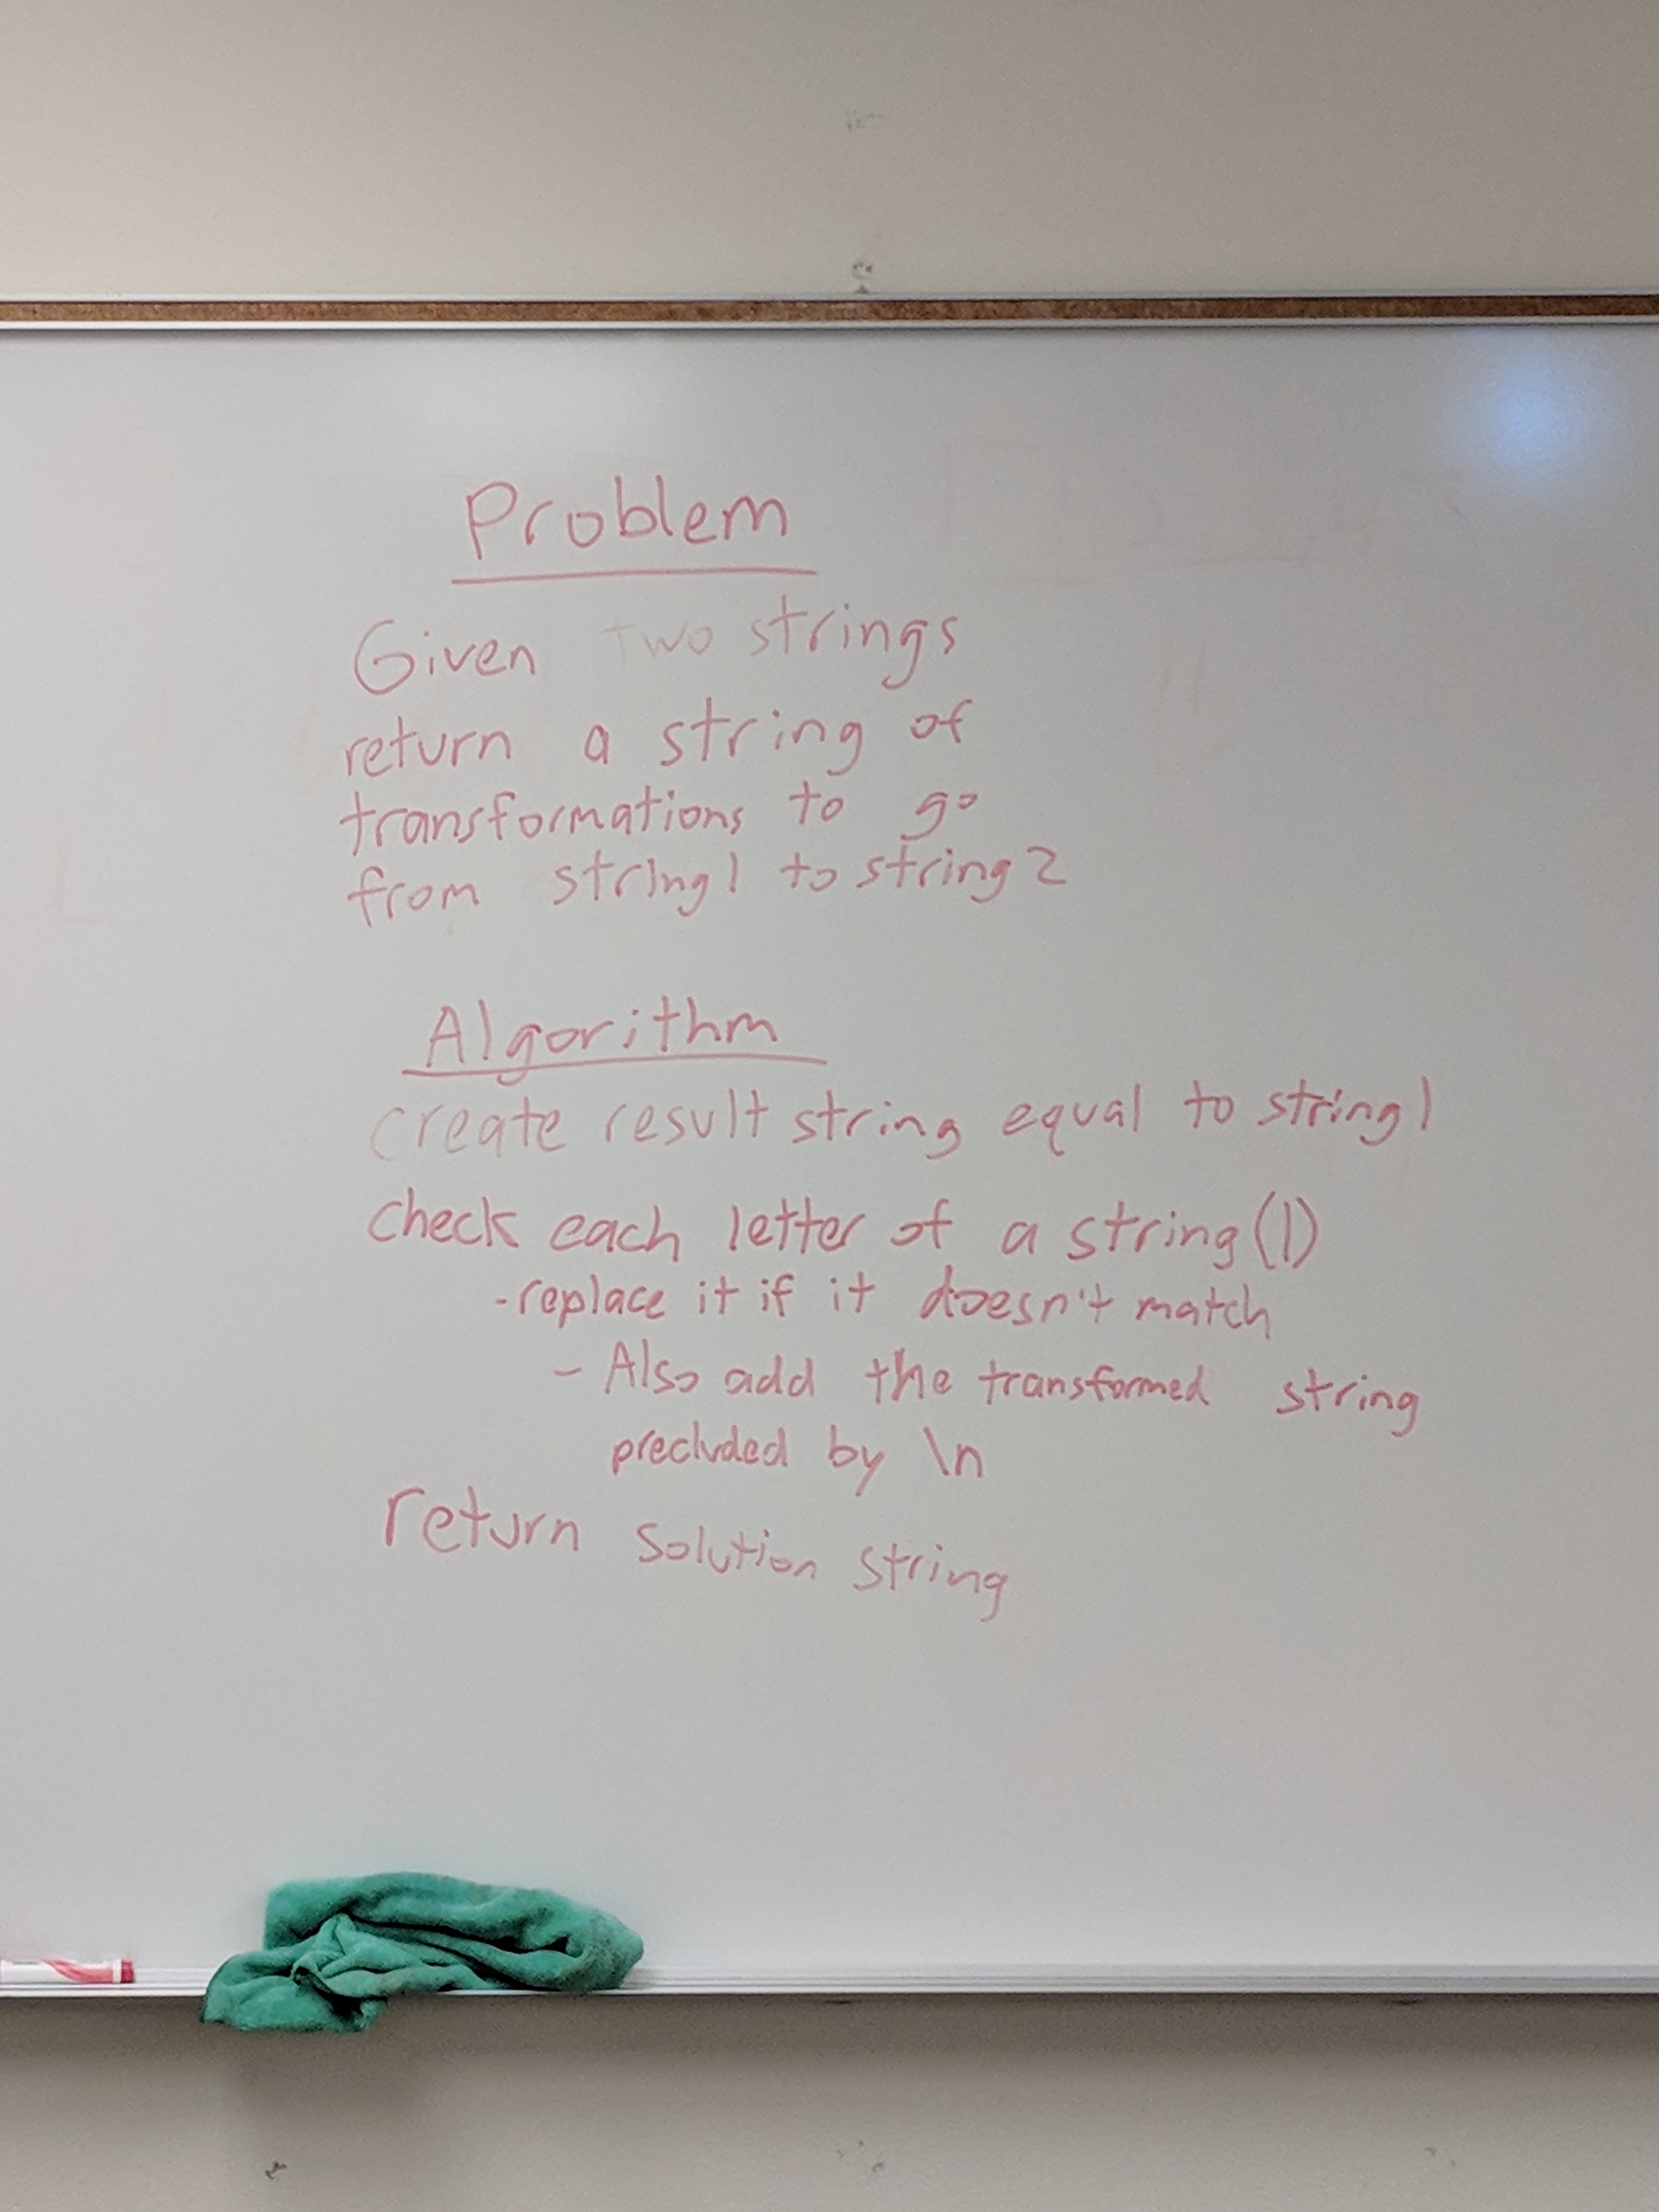 Problem
Given two strings
return a string of
transformations to go
from string1 to string2
Algorithm
create result string equal to string1
check each letter of a string(1)
-replace it if it doesn't match
- Also add the transformed string
precluded by \n
return solution string